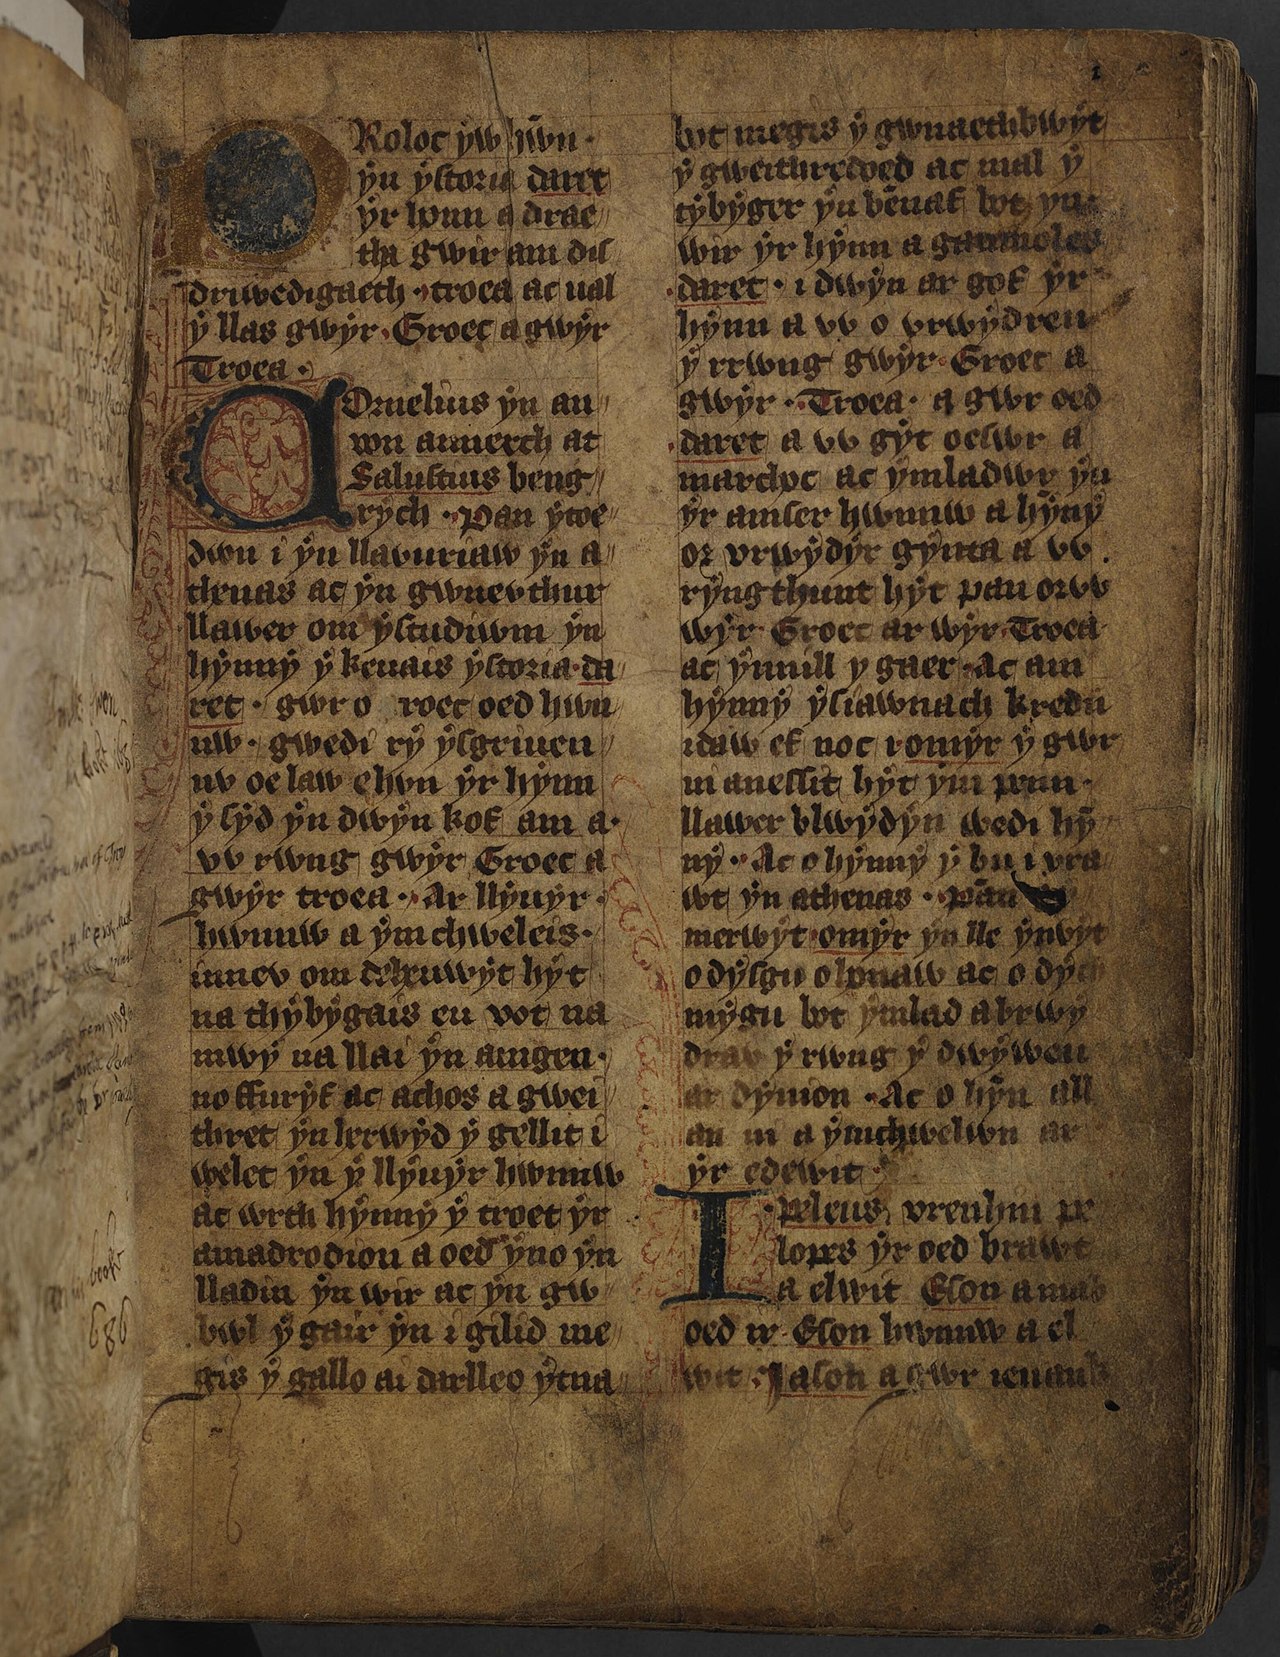 PRoloc ẏw hỽn ·
ẏn ẏstoria daret
ẏr hỽnn a drae
tha gwir am dis
driwedigaeth · troea ac ual
ẏ llas gwẏr · Groec a gwẏr
Troea ·
COrnelius ẏn an
uon annerch at
Salustius beng
rẏch · Pan ẏtoe
dwn i ẏn llavuriaw ẏn a
thenas ac ẏn gwnevthur
llawer om ẏstudiwm ẏn
hẏnnẏ ẏ keuais ẏstoria · da
ret · gwr o roec oed hwn
nw · gwedi rẏ ẏsgriuen
nv oe law ehvn ẏr hẏnn
ẏ sẏd ẏn dwẏn kof am a
vv rwng gwẏr Groec a
gwẏr troea · Ar llẏuẏr ·
hwnnw a ẏmchweleis ·
innev om dehuwẏt hẏt
na thẏbẏgais eu vot na
mwẏ na llai ẏn amgen ·
no ffurẏf ac achos a gwei
thret ẏn herwẏd ẏ gellit i
welet ẏn ẏ llẏuẏr hwnnw
ac wrth hẏnnẏ ẏ troet ẏr
amadrodion a oed ẏno ẏn
lladin ẏn wir ac ẏn gw
bwl ẏ gair ẏn i gilid me
gis ẏ gallo ai darlleo ẏtna
bot megis ẏ gwnaethbwẏt
ẏ gweithredoed ac mal ẏ
tẏbẏger ẏn benaf bot yn
wir ẏr hẏnn a ganmoles
daret · i dwẏn ar gof ẏr
hẏnn a vv o vrwẏdren
ẏ rrwng gwẏr Groec a
gwẏr · Troea · a gwr oed
daret a vv gẏt oeswr a
marchoc ac ẏmladwr ẏn
ẏr amser hwnnw a hẏnẏ
or vrwẏdẏr gẏnta a vv
rẏngthunt hẏt pan orvv
wẏr Groec ar wẏr Troea
ac ẏnnill y gaer · Ac am
hẏnnẏ ẏsiawnach kredu
idaw ef noc i omẏr ẏ gwr
ni anessit hẏt ẏm penn ·
llawer blwẏdẏn wedi hẏ
nẏ · Ac o hẏnnẏ ẏ bu i vra
wt ẏn athenas · pan
merwẏt omẏr ẏn lle ẏnvẏt
o dẏsgu ohonaw ac o dẏch
mẏgu bot ẏmlad a brwẏ
drav ẏ rwng ẏ dwẏweu
ar dẏnion · Ac o hẏn all
an ni a ẏmchwelwn ar
ẏr edewit ·
I Peleus vrenhin pe
lopes ẏr oed brawt
a elwit Eson a mab
oed ir Eson hwnnw a el
wit · Jason a gwr ieuanc
1
686